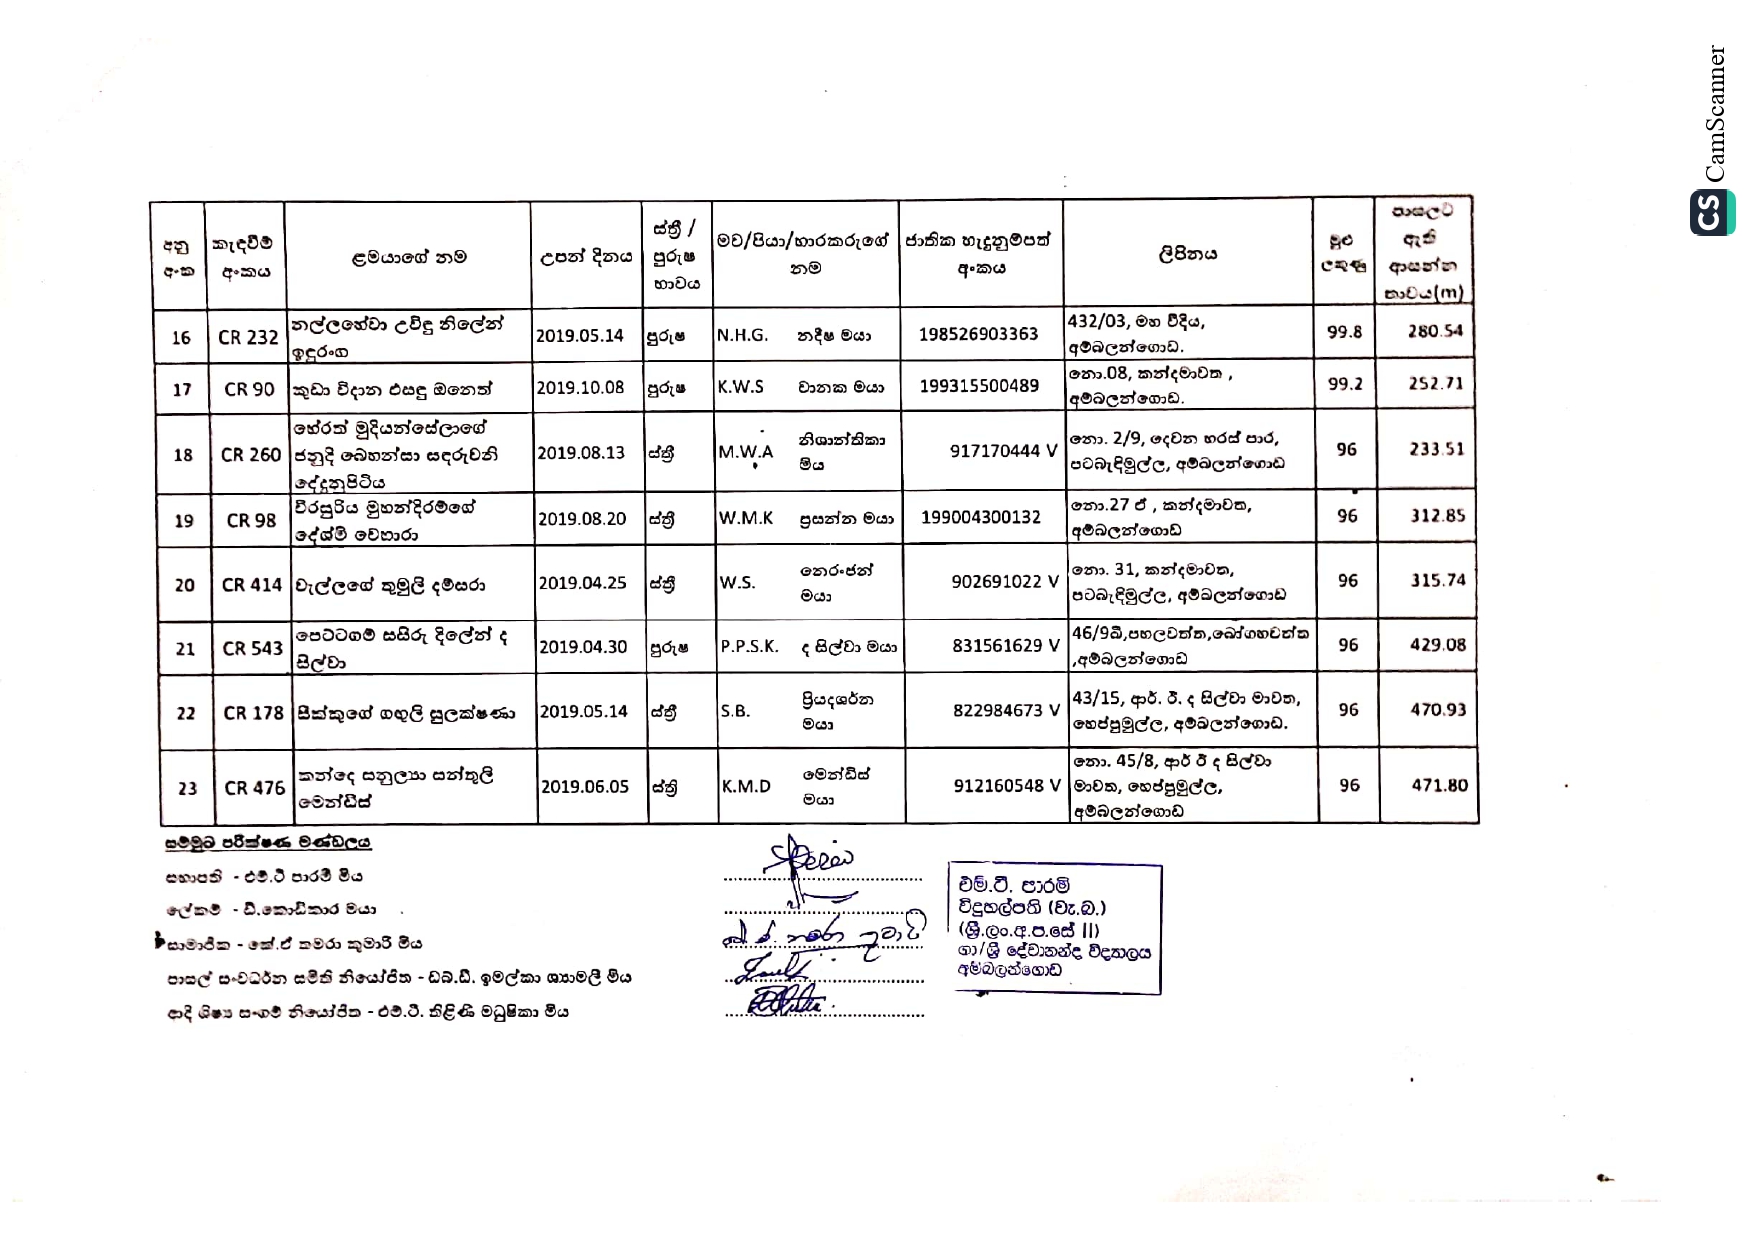 CamScanner
CS
අනු අංක | කැඳවීම් අංකය | ළමයාගේ නම | උපන් දිනය | ස්ත්‍රී / පුරුෂ භාවය | මව/පියා/භාරකරුගේ නම | ජාතික හැඳුනුම්පත් අංකය | ලිපිනය | මුළු ලකුණු | පාසලට ඇති ආසන්න භාවය(m)
16 | CR 232 | නල්ලහේවා උවිඳු නිලේන් ඉඳුරංග | 2019.05.14 | පුරුෂ | N.H.G. නදීෂ මයා | 198526903363 | 432/03, මහ වීදිය, අම්බලන්ගොඩ. | 99.8 | 280.54
17 | CR 90 | කුඩා විදාන එසඳු ඔනෙත් | 2019.10.08 | පුරුෂ | K.W.S වානක මයා | 199315500489 | නො.08, කන්දමාවත , අම්බලන්ගොඩ. | 99.2 | 252.71
18 | CR 260 | හේරත් මුදියන්සේලාගේ ජනුදි බෙහන්සා සඳරුවනි දේදුනුපිටිය | 2019.08.13 | ස්ත්‍රී | M.W.A නිශාන්තිකා මිය | 917170444 V | නො. 2/9, දෙවන හරස් පාර, පටබැඳිමුල්ල, අම්බලන්ගොඩ | 96 | 233.51
19 | CR 98 | වීරසූරිය මුහන්දිරම්ගේ දේශ්මි වෙහාරා | 2019.08.20 | ස්ත්‍රී | W.M.K ප්‍රසන්න මයා | 199004300132 | නො.27 ඒ , කන්දමාවත, අම්බලන්ගොඩ | 96 | 312.85
20 | CR 414 | වැල්ලගේ කුමුලි දම්සරා | 2019.04.25 | ස්ත්‍රී | W.S. නෙරංජන් මයා | 902691022 V | නො. 31, කන්දමාවත, පටබැඳිමුල්ල, අම්බලන්ගොඩ | 96 | 315.74
21 | CR 543 | පෙට්ටගම් සසිරු දිලේන් ද සිල්වා | 2019.04.30 | පුරුෂ | P.P.S.K. ද සිල්වා මයා | 831561629 V | 46/9බී,පහලවත්ත,බෝගහවත්ත ,අම්බලන්ගොඩ | 96 | 429.08
22 | CR 178 | සික්කුගේ ගඟුලි සුලක්ෂණා | 2019.05.14 | ස්ත්‍රී | S.B. ප්‍රියදර්ශන මයා | 822984673 V | 43/15, ආර්. ඊ. ද සිල්වා මාවත, හෙප්පුමුල්ල, අම්බලන්ගොඩ. | 96 | 470.93
23 | CR 476 | කන්දෙ සනුල්‍යා සන්තුලි මෙන්ඩිස් | 2019.06.05 | ස්ත්‍රි | K.M.D මෙන්ඩිස් මයා | 912160548 V | නො. 45/8, ආර් ඊ ද සිල්වා මාවත, හෙප්පුමුල්ල, අම්බලන්ගොඩ | 96 | 471.80
සම්මුඛ පරීක්ෂණ මණ්ඩලය
සභාපති - එම්.ටී පාරමී මිය
ලේකම් - ඩී.කොඩිකාර මයා
සාමාජික - කේ.ඒ තමරා කුමාරි මිය
පාසල් සංවර්ධන සමිති නියෝජිත - ඩබ්.ඩී. ඉමල්කා ශ්‍යාමලී මිය
ආදි ශිෂ්‍ය සංගම් නියෝජිත - එම්.ටී. තිළිණි මධුෂිකා මිය
එම්.ටී. පාරමි
විදුහල්පති (වැ.බ.)
(ශ්‍රී.ලං.අ.ප.සේ II)
ගා/ශ්‍රී දේවානන්ද විද්‍යාලය
අම්බලන්ගොඩ